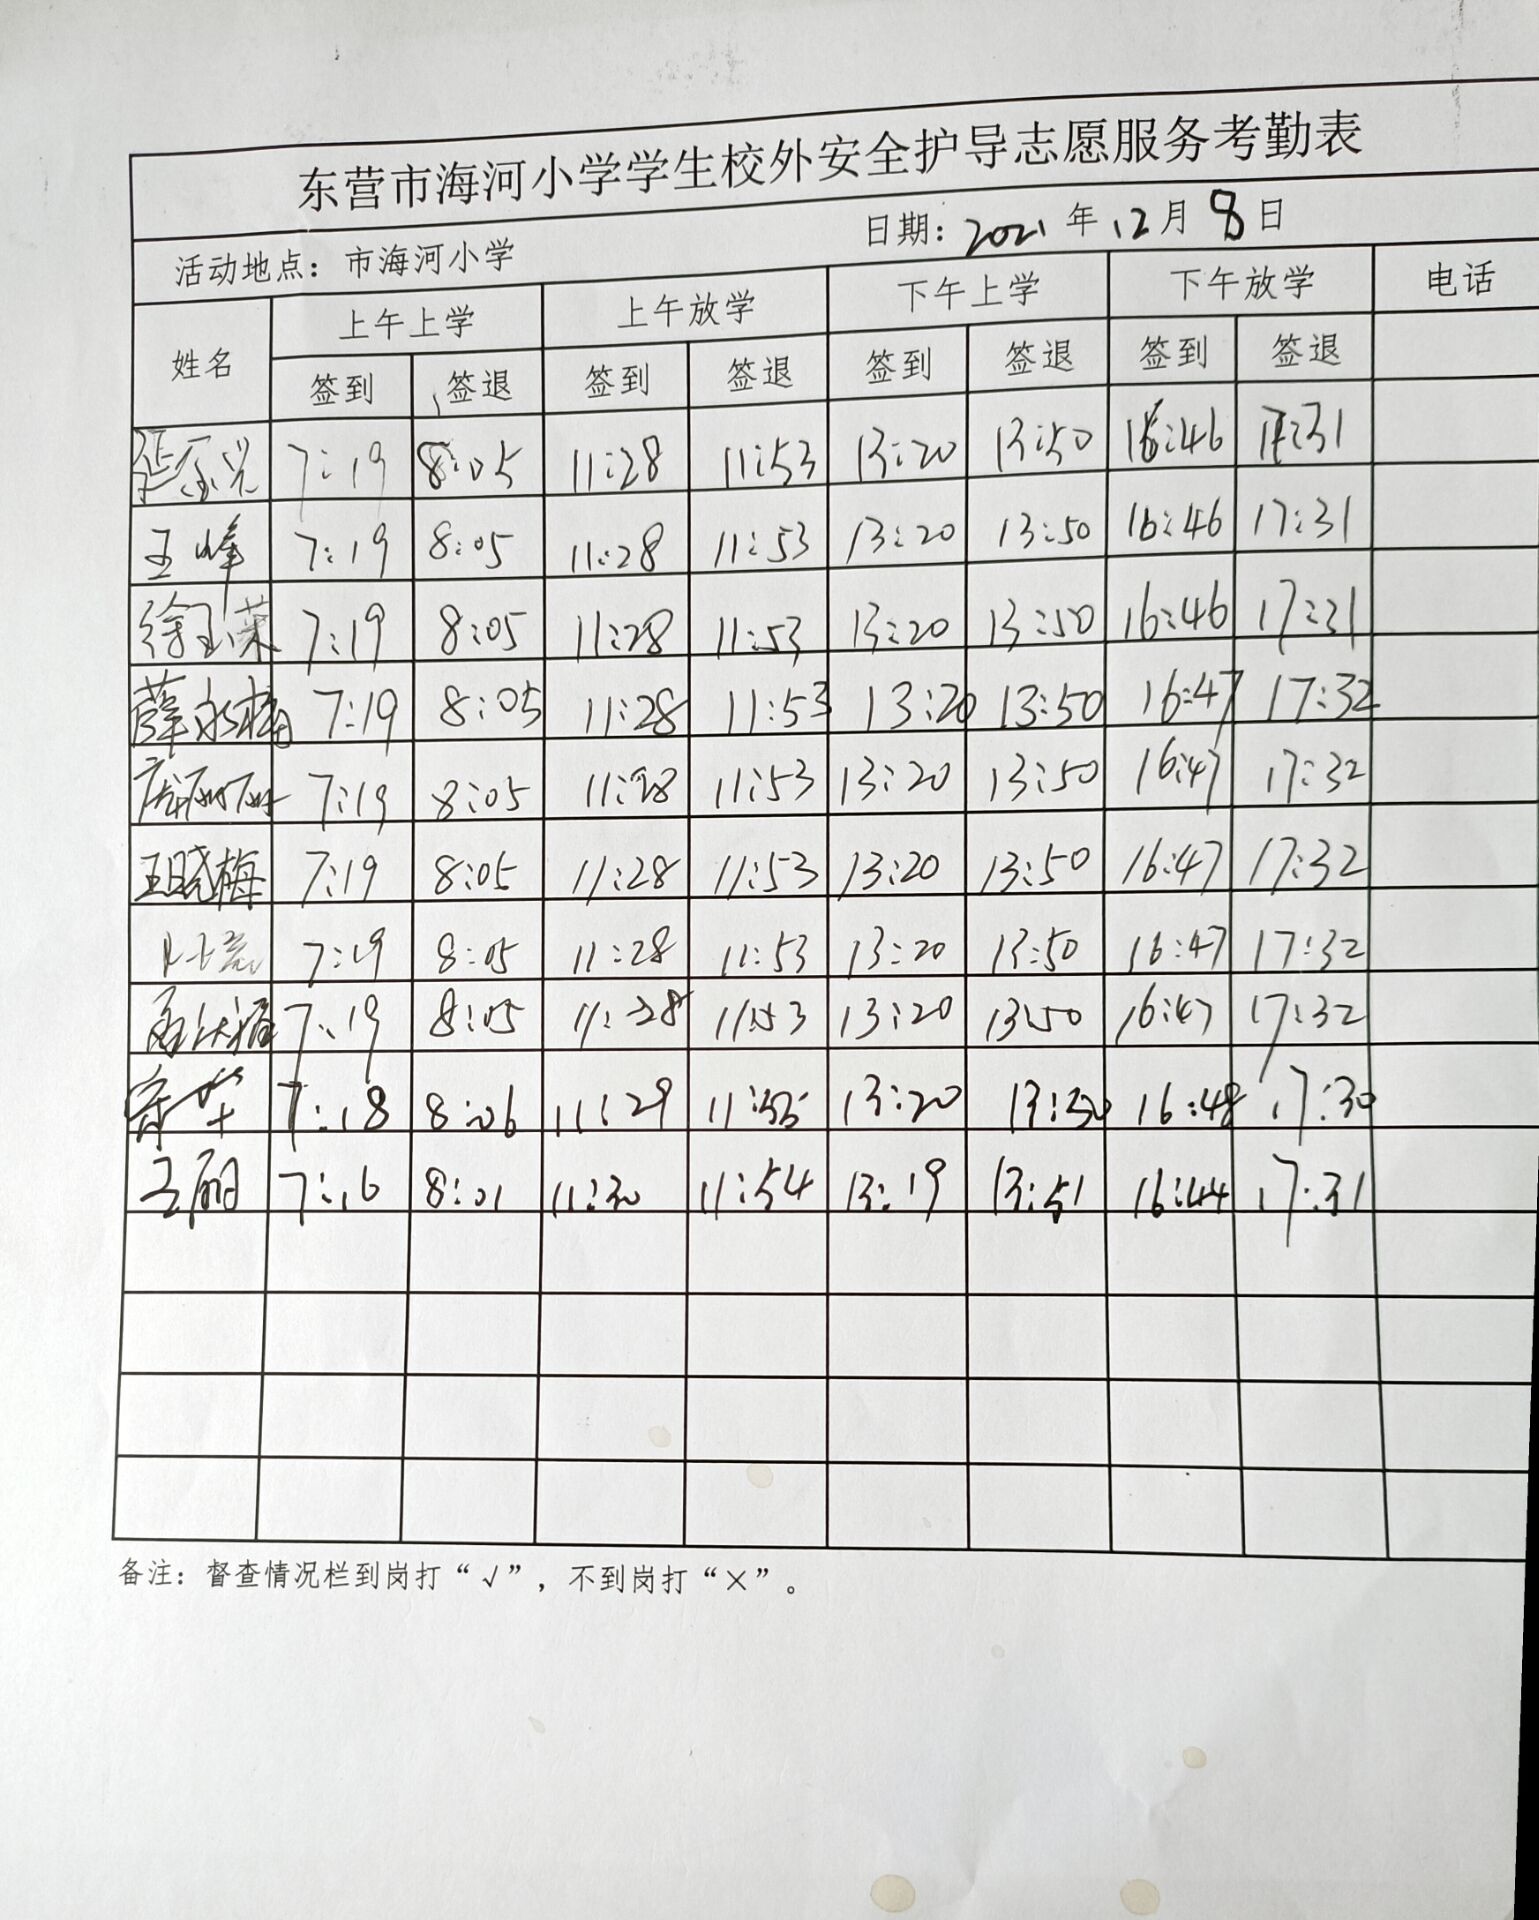 东营市海河小学学生校外安全护导志愿服务考勤表
活动地点：市海河小学 日期：2021年12月8日
姓名 上午上学 上午放学 下午上学 下午放学 电话
签到 签退 签到 签退 签到 签退 签到 签退
7:19 8:05 11:28 11:53 13:20 13:50 16:46 17:31
王峰 7:19 8:05 11:28 11:53 13:20 13:50 16:46 17:31
徐玉荣 7:19 8:05 11:28 11:53 13:20 13:50 16:46 17:31
薛永梅 7:19 8:05 11:28 11:53 13:20 13:50 16:47 17:32
庞丽丽 7:19 8:05 11:28 11:53 13:20 13:50 16:47 17:32
王晓梅 7:19 8:05 11:28 11:53 13:20 13:50 16:47 17:32
7:19 8:05 11:28 11:53 13:20 13:50 16:47 17:32
7:19 8:05 11:28 11:53 13:20 13:50 16:47 17:32
7:18 8:06 11:29 11:55 13:20 13:50 16:48 17:30
王丽 7:16 8:01 11:30 11:54 13:19 13:51 16:44 17:31
备注：督查情况栏到岗打“√”，不到岗打“×”。